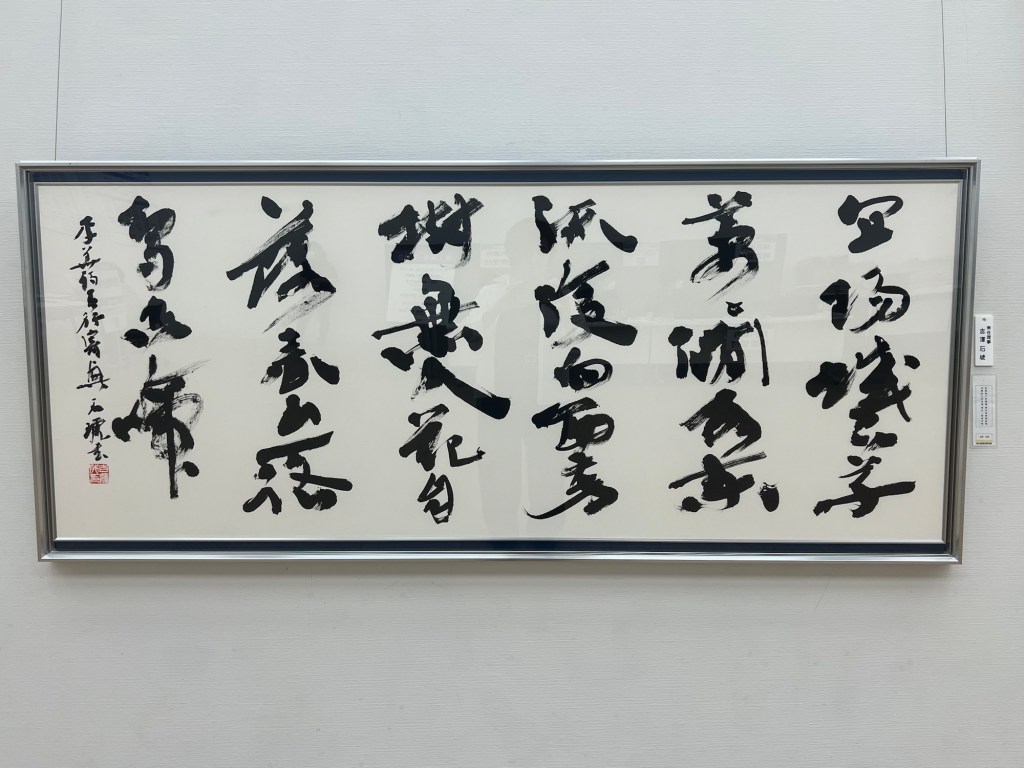 宜陽城下草
萋々澗水東
流復向西芳
樹無人花自
落春山一路
鳥空啼
李華詩春行寄興 石